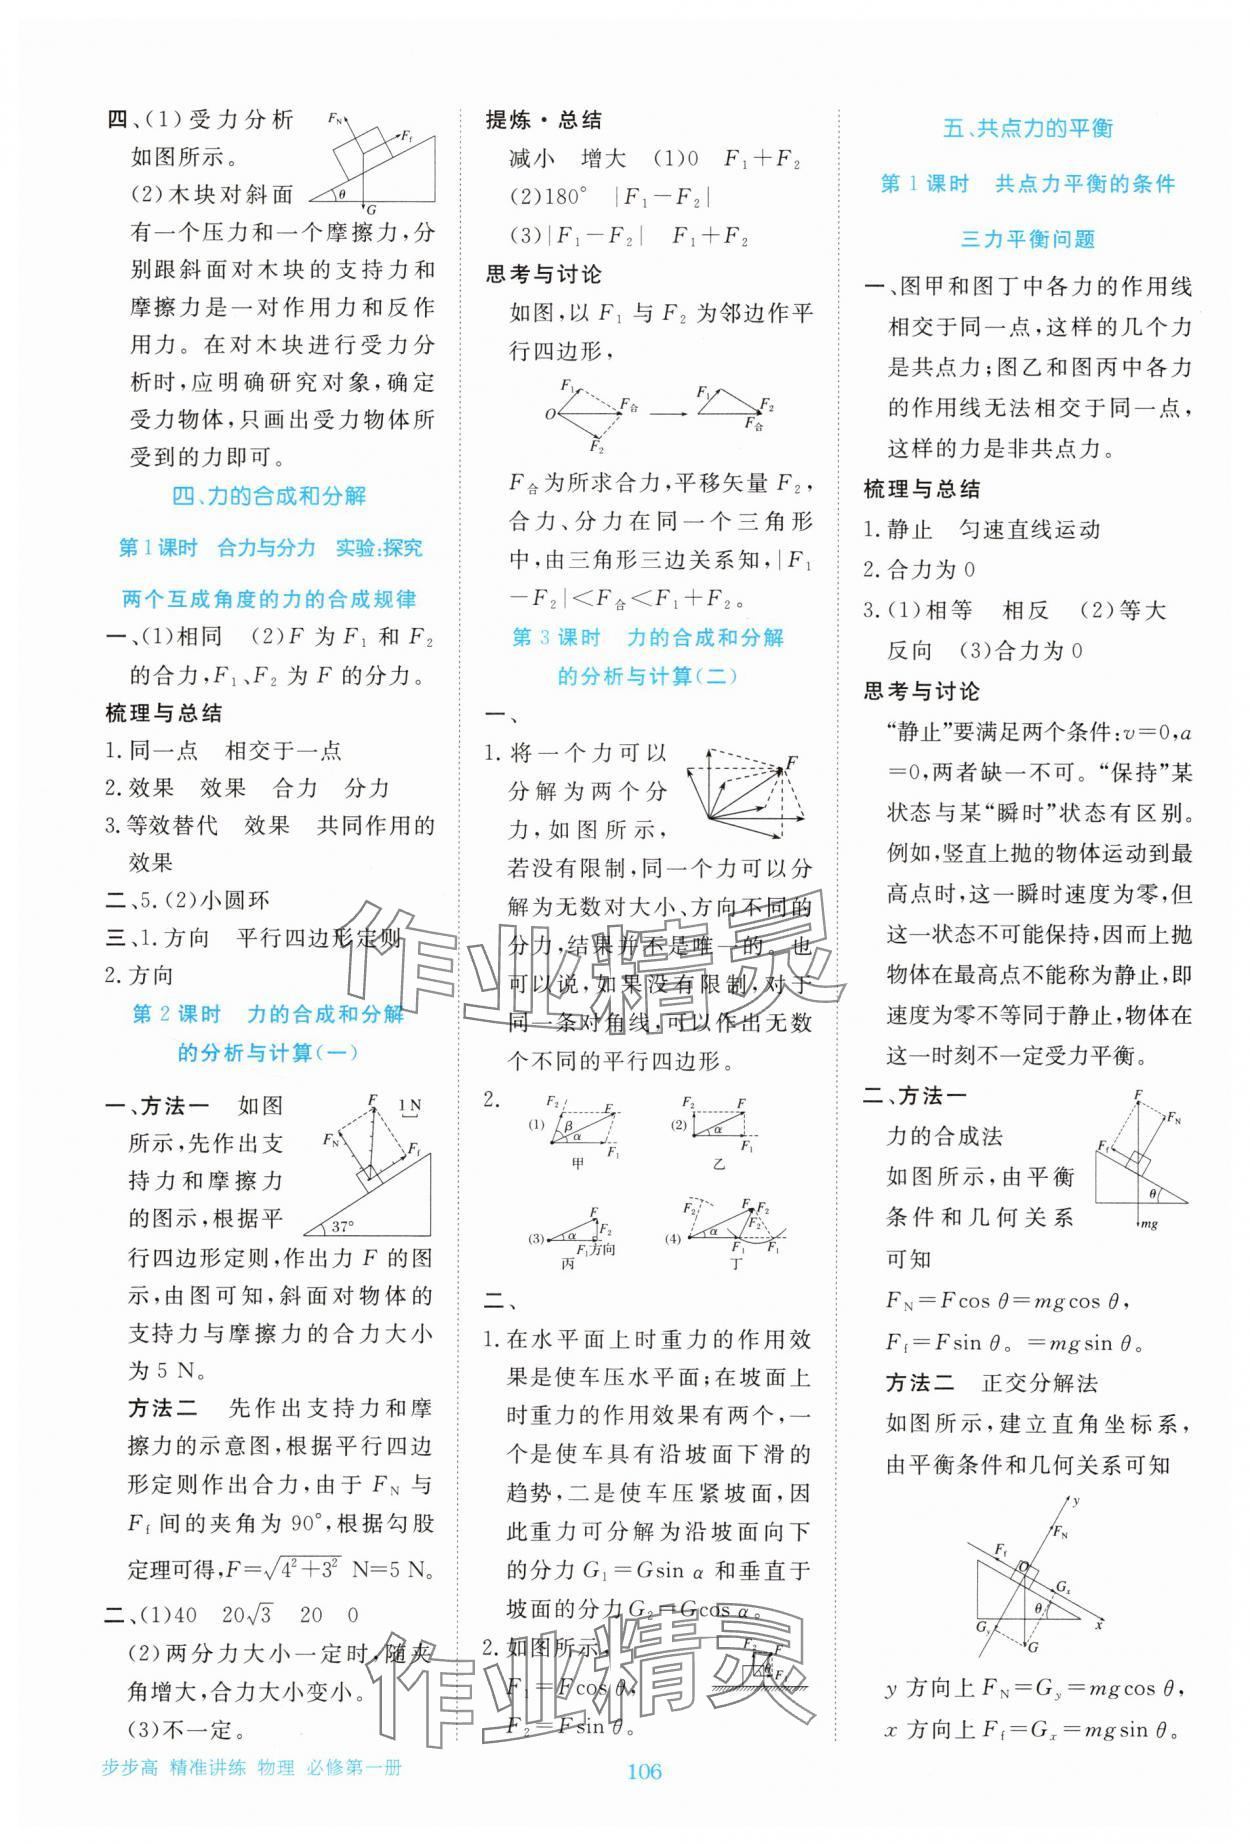 四、(1)受力分析
如图所示。
(2)木块对斜面
F_N
F_f
θ
G
有一个压力和一个摩擦力,分
别跟斜面对木块的支持力和
摩擦力是一对作用力和反作
用力。在对木块进行受力分
析时,应明确研究对象,确定
受力物体,只画出受力物体所
受到的力即可。
四、力的合成和分解
第1课时 合力与分力 实验:探究
两个互成角度的力的合成规律
一、(1)相同 (2)F 为 F₁ 和 F₂
的合力,F₁、F₂ 为 F 的分力。
梳理与总结
1.同一点 相交于一点
2.效果 效果 合力 分力
3.等效替代 效果 共同作用的
效果
二、5.(2)小圆环
三、1.方向 平行四边形定则
2.方向
第2课时 力的合成和分解
的分析与计算(一)
一、方法一 如图
所示,先作出支
持力和摩擦力
的图示,根据平
F 1 N
F_N
F_f
37°
行四边形定则,作出力 F 的图
示,由图可知,斜面对物体的
支持力与摩擦力的合力大小
为5 N。
方法二 先作出支持力和摩
擦力的示意图,根据平行四边
形定则作出合力,由于 F_N 与
F_f 间的夹角为 90°,根据勾股
定理可得,F=√(4²+3²) N=5 N。
二、(1)40 20√3 20 0
(2)两分力大小一定时,随夹
角增大,合力大小变小。
(3)不一定。
提炼·总结
减小 增大 (1)0 F₁+F₂
(2)180° |F₁-F₂|
(3)|F₁-F₂| F₁+F₂
思考与讨论
如图,以 F₁ 与 F₂ 为邻边作平
行四边形,
F₁ F₁ F₂
O F合 F合
F₂
F合为所求合力,平移矢量 F₂,
合力、分力在同一个三角形
中,由三角形三边关系知,|F₁
-F₂|<F合<F₁+F₂。
第3课时 力的合成和分解
的分析与计算(二)
一、
1.将一个力可以
分解为两个分
力,如图所示,
F
若没有限制,同一个力可以分
解为无数对大小、方向不同的
分力,结果并不是唯一的。也
可以说,如果没有限制,对于
同一条对角线,可以作出无数
个不同的平行四边形。
2.
(1) F₂ F β α F₁ 甲
(2) F₂ F α F₁ 乙
(3) F F₂ α F₁方向 丙
(4) F₂ F F₂ F₂ α F₁ F₁ 丁
二、
1.在水平面上时重力的作用效
果是使车压水平面;在坡面上
时重力的作用效果有两个,一
个是使车具有沿坡面下滑的
趋势,二是使车压紧坡面,因
此重力可分解为沿坡面向下
的分力 G₁=Gsin α 和垂直于
坡面的分力 G₂=Gcos α。
2.如图所示,
F₁=Fcos θ,
F₂=Fsin θ。
F₂ F
θ F₁
五、共点力的平衡
第1课时 共点力平衡的条件
三力平衡问题
一、图甲和图丁中各力的作用线
相交于同一点,这样的几个力
是共点力;图乙和图丙中各力
的作用线无法相交于同一点,
这样的力是非共点力。
梳理与总结
1.静止 匀速直线运动
2.合力为0
3.(1)相等 相反 (2)等大
反向 (3)合力为0
思考与讨论
“静止”要满足两个条件:v=0,a
=0,两者缺一不可。“保持”某
状态与某“瞬时”状态有区别。
例如,竖直上抛的物体运动到最
高点时,这一瞬时速度为零,但
这一状态不可能保持,因而上抛
物体在最高点不能称为静止,即
速度为零不等同于静止,物体在
这一时刻不一定受力平衡。
二、方法一
力的合成法
如图所示,由平衡
条件和几何关系
可知
F
F_N
F_f
θ
mg
F_N=Fcos θ=mgcos θ,
F_f=Fsin θ。=mgsin θ。
方法二 正交分解法
如图所示,建立直角坐标系,
由平衡条件和几何关系可知
y
F_N
F_f O
Gₓ
θ
G_y x
G
y 方向上 F_N=G_y=mgcos θ,
x 方向上 F_f=Gₓ=mgsin θ。
作业精灵
作业精灵
步步高 精准讲练 物理 必修第一册
106